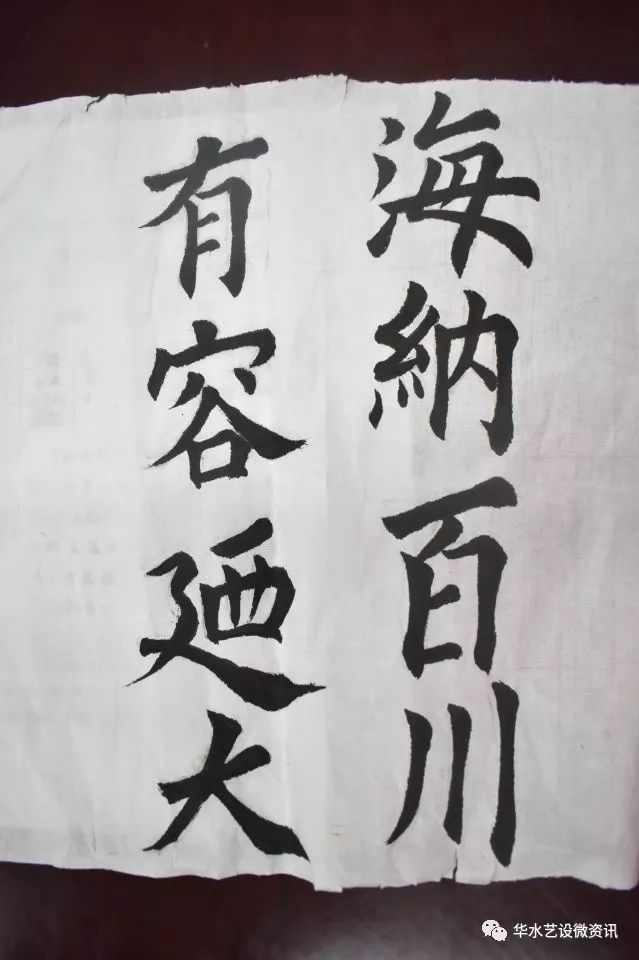 海納百川
有容廼大
华水艺设微资讯